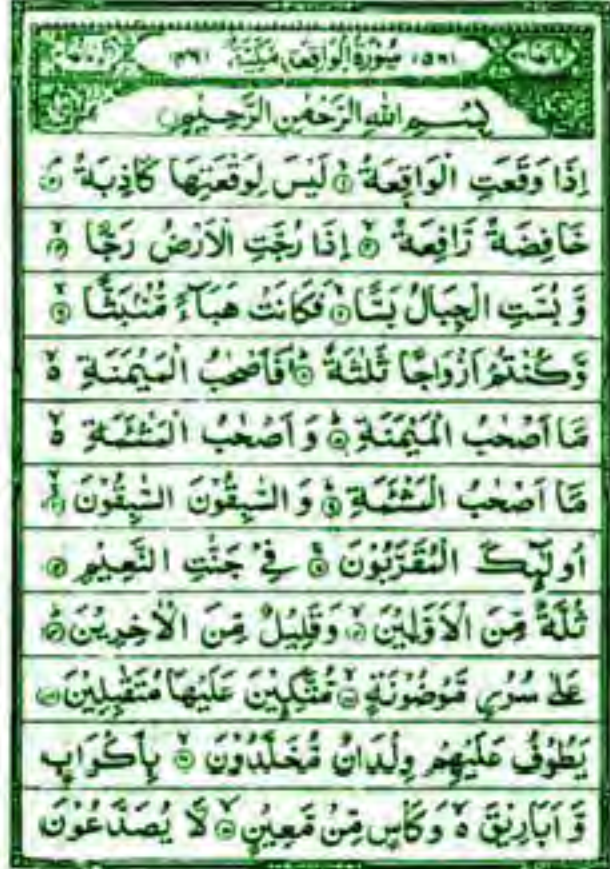 (۵۶) سُوْرَةُ الْوَاقِعَةِ مَكِّيَّةٌ (۴۶)
بِسْمِ اللهِ الرَّحْمٰنِ الرَّحِيْمِ
اِذَا وَقَعَتِ الْوَاقِعَةُ ۙ۱ لَيْسَ لِوَقْعَتِهَا كَاذِبَةٌ ۘ۲
خَافِضَةٌ رَّافِعَةٌ ۙ۳ اِذَا رُجَّتِ الْاَرْضُ رَجًّا ۙ۴
وَّ بُسَّتِ الْجِبَالُ بَسًّا ۙ۵ فَكَانَتْ هَبَآءً مُّنْۢبَثًّا ۙ۶
وَّكُنْتُمْ اَزْوَاجًا ثَلٰثَةً ؕ۷ فَاَصْحٰبُ الْمَيْمَنَةِ ۙ۬
مَاۤ اَصْحٰبُ الْمَيْمَنَةِ ؕ۸ وَ اَصْحٰبُ الْمَشْـَٔمَةِ ۙ۬
مَاۤ اَصْحٰبُ الْمَشْـَٔمَةِ ؕ۹ وَ السّٰبِقُوْنَ السّٰبِقُوْنَ ۙ۱۰
اُولٰٓئِكَ الْمُقَرَّبُوْنَ ۚ۱۱ فِيْ جَنّٰتِ النَّعِيْمِ ۱۲
ثُلَّةٌ مِّنَ الْاَوَّلِيْنَ ۙ۱۳ وَقَلِيْلٌ مِّنَ الْاٰخِرِيْنَ ؕ۱۴
عَلٰى سُرُرٍ مَّوْضُوْنَةٍ ۙ۱۵ مُّتَّكِـِٕيْنَ عَلَيْهَا مُتَقٰبِلِيْنَ ۱۶
يَطُوْفُ عَلَيْهِمْ وِلْدَانٌ مُّخَلَّدُوْنَ ۙ۱۷ بِاَكْوَابٍ
وَّ اَبَارِيْقَ ۙ۬ وَكَاْسٍ مِّنْ مَّعِيْنٍ ۙ۱۸ لَّا يُصَدَّعُوْنَ